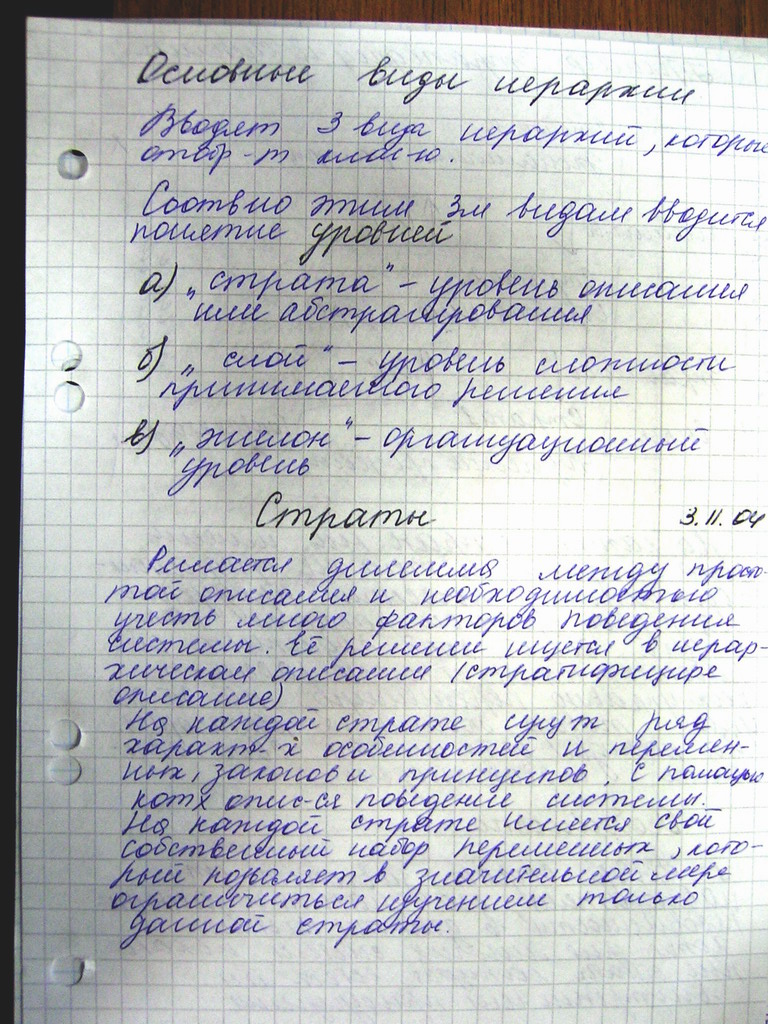 Основные виды иерархии
Вводят 3 вида иерархий, которые
отвор-т клас-ю.
Соотвно этим 3м видам вводится
понятие уровней
а) „страта" – уровень описания
или абстрагирования
б) „слой" – уровень сложности
принимаемого решения
в) „эшелон" – организационный
уровень
Страты 3.11.04
Решается дилемма между просто-
той описания и необходимостью
учесть много факторов поведения
системы. Её решении ищется в иерар-
хическом описании (стратифицир-е
описание)
На каждой страте ряд
характ-х особенностей и перемен-
ных, законов и принципов, с помощью
кот-х опис-ся поведение системы.
На каждой страте имеется свой
собственный набор переменных, кото-
рый позволяет в значительной мере
ограничиться изучением только
данной страты.